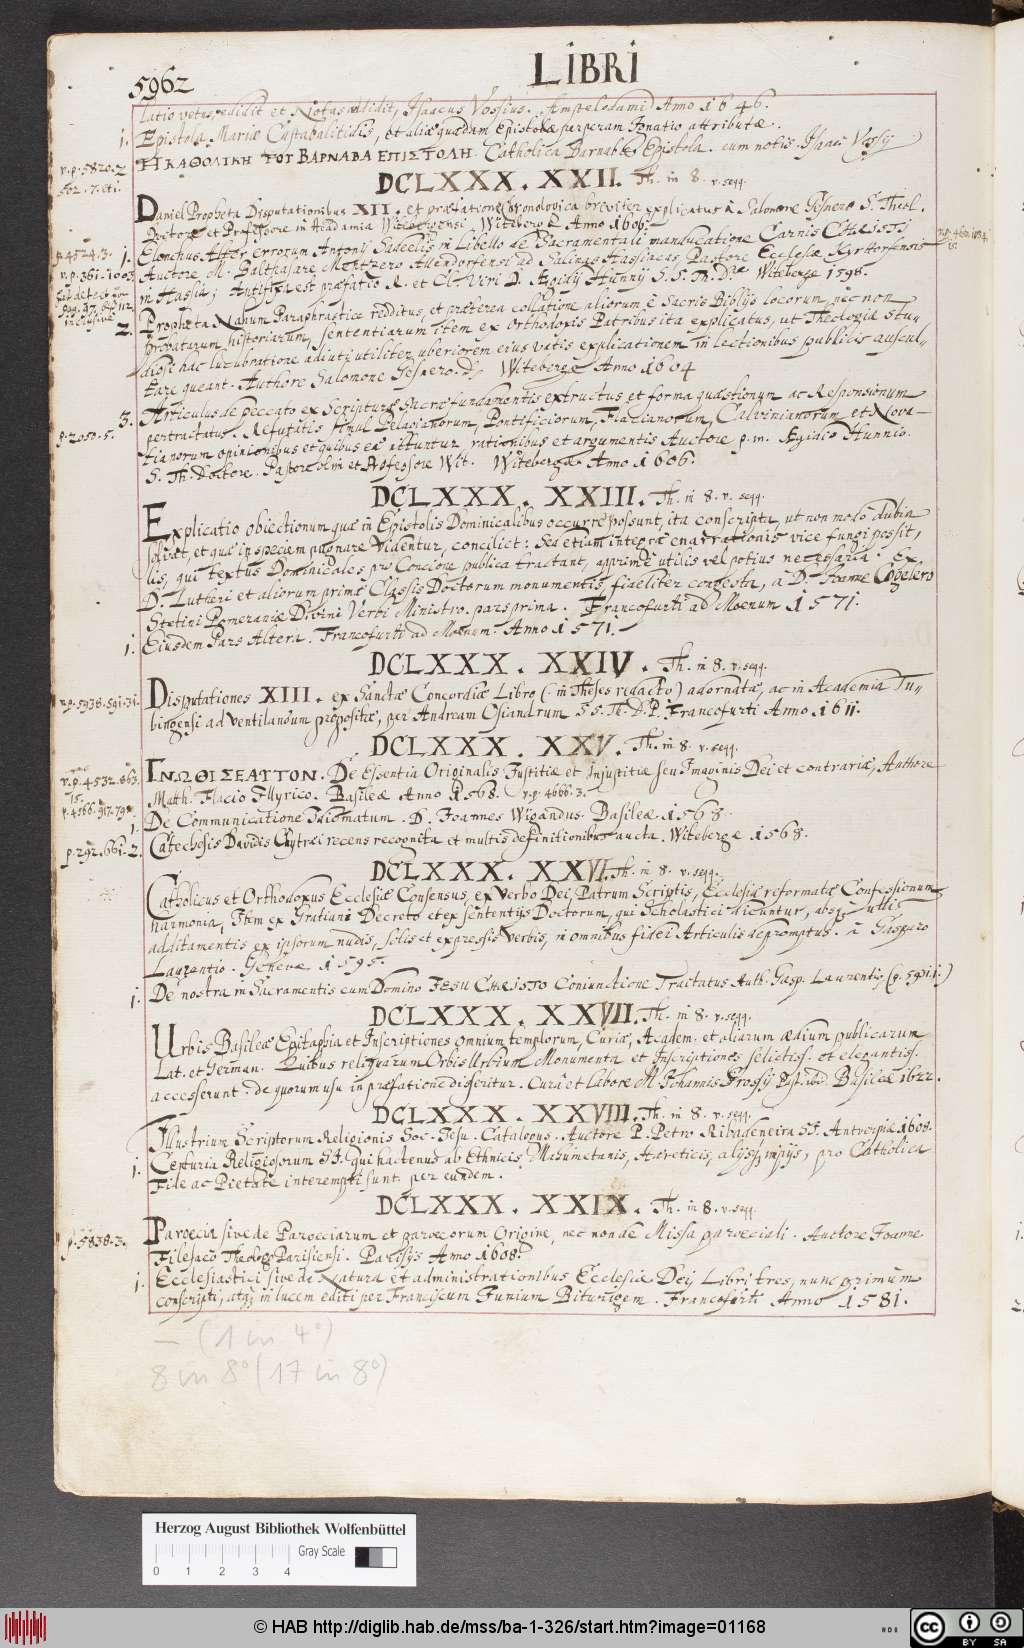 5962
LIBRI
latio vetus, edidit et Notas addidit, Isaacus Vossius. Amstelodami Anno 1646.
1. Epistola Mariæ Castabalitidis, et aliæ quædam Epistolæ perperam Ignatio attributæ.
Η ΚΑΘΟΛΙΚΗ ΤΟΥ ΒΑΡΝΑΒΑ ΕΠΙΣΤΟΛΗ. Catholica Barnabæ Epistola. cum notis Isaac Vossij
DCLXXX. XXII. Th. in 8. v. seqq.
Daniel Propheta Disputationibus XII. et præfatione Chronologica breviter explicatus à Salomone Gesnero S. Theol.
Doctore et Professore in Academia Witebergensi. Witebergæ Anno 1606.
1. Elenchus Alter errorum Antonij Sadeelis in Libello de Sacramentali manducatione Carnis CHRISTI
Auctore M. Balthasare Mentzero Allendorfensi ad Salinas Hassiacas, Pastore Ecclesiæ Kyrtorfensis
in Hassia; Antefixa est præfatio R. et Cl. Viri D. Ægidij Hunnij S. S. Th. Dris Witebergæ 1598.
2. Propheta Nahum Paraphrastice redditus, et præterea collatione aliorum è Sacris Biblijs locorum, nec non
probatarum historiarum, sententiarum item ex Orthodoxis Patribus ita explicatus, ut Theologiæ stu-
diosi hac lucubratione adiuti utiliter uberiorem eius vatis explicationem in lectionibus publicis auscul-
tare queant. Authore Salomone Gesnero. D. Witebergæ Anno 1604
3. Articulus de peccato ex Scripturæ Sacræ fundamentis extructus et forma quæstionum ac Responsionum
pertractatus. Refutatis simul Pelagianorum, Pontificiorum, Flacianorum, Calvinianorum et Nova-
tianorum opinionibus et quibus eæ affuntur rationibus et argumentis Auctore p. m. Ægidio Hunnio.
S. Th. Doctore. Pastore olim et Professore Wit. Witebergæ Anno 1606.
DCLXXX. XXIII. Th. in 8. v. seqq.
Explicatio obiectionum quæ in Epistolis Dominicalibus occurrere possunt, ita conscripta, ut non modo dubia
solvat, et quæ in speciem pugnare videntur, conciliet: Sed etiam integræ enarrationis vice fungi possit,
lis, qui textus Dominicales pro Concione publica tractant, apprime utilis vel potius necessaria. Ex
D. Lutheri et aliorum primæ Classis Doctorum monumentis fideliter congesta, à D. Ioanne Cogelero
Stetini Pomeraniæ Divini Verbi Ministro. pars prima. Francofurti ad Moenum 1571.
1. Eiusdem Pars Altera. Francofurti ad Moenum. Anno 1571.
DCLXXX. XXIV. Th. in 8. v. seqq.
Disputationes XIII. ex Sanctæ Concordiæ Libro (in Theses redacto) adornatæ, ac in Academia Tu-
bingensi ad ventilandum propositæ, per Andream Osiandrum S S. Th. D. P. Francofurti Anno 1611.
DCLXXX. XXV. Th. in 8. v. seqq.
ΓΝΩΘΙ ΣΕΑΥΤΟΝ. De Essentia Originalis Iustitiæ et Injustitiæ seu Imaginis Dei et contrariæ, Authore
Matth. Flacio Illyrico. Basileæ Anno 1568. v. p. 4666. 3.
1. De Communicatione Idiomatum. D. Joannes Wigandus. Basileæ 1568.
2. Catechesis Davidis Chytræi recens recognita et multis definitionibus aucta. Witebergæ 1568.
DCLXXX. XXVI. Th. in 8. v. seqq.
Catholicus et Orthodoxus Ecclesiæ Consensus, ex Verbo Dei, Patrum Scriptis, Ecclesiæ reformatæ Confessionum
harmonia, Item ex Gratiani Decreto et ex sententijs Doctorum, qui Scholastici dicuntur, absq; ullis
additamentis ex ipsorum nudis, solis et expressis verbis, in omnibus fidei Articulis depromptus. à Gasparo
Laurentio. Genevæ 1595.
1. De nostra in Sacramentis cum Domino JESU CHRISTO Coniunctione Tractatus Auth. Gasp. Laurentio, (p. 591. 1.)
DCLXXX. XXVII. Th. in 8. v. seqq.
Urbis Basileæ Epitaphia et Inscriptiones omnium templorum, Curiæ, Academ. et aliarum ædium publicarum
Lat. et German. Quibus reliquarum Orbis Urbium Monumenta et Inscriptiones selectiss. et elegantiss.
accesserunt. de quorum usu in præfatione disseritur. Curâ et Labore M. Johannis Grossij Past. ibid. Basileæ 1622.
DCLXXX. XXVIII. Th. in 8. v. seqq.
Illustrium Scriptorum Religionis Soc. Jesu. Catalogus. Auctore P. Petro Ribadeneira S I. Antverpiæ 1608.
1. Centuria Religiosorum S I. qui hactenus ab Ethnicis, Mahumetanis, Hæreticis, alijsq; impijs, pro Catholica
Fide ac Pietate interempti sunt. per eundem.
DCLXXX. XXIX. Th. in 8. v. seqq.
Paroecia sive de Paroeciarum et paroecorum Origine, nec non de Missa paroeciali. Auctore Joanne
Filesaco Theologo Parisiensi. Parisijs Anno 1608.
1. Ecclesiastici sive de Natura et administrationibus Ecclesiæ Dei, Libri tres, nunc primum
conscripti, atq; in lucem editi per Franciscum Junium Biturigem. Francofurti Anno 1581.
v. p. 5820. 2
562. 7. et 1.
p. 4524. 3.
v. p. 361. 1003
inclusive
p. 2050. 5.
v. p. 5938. 591. 31.
v. p. 4532. 663.
15.
v. 4566. 917. 79
p. 292. 661.
p. 5838. 3.
– (1 in 4°)
8 in 8° (17 in 8°)
Herzog August Bibliothek Wolfenbüttel
Gray Scale
0 1 2 3 4
© HAB http://diglib.hab.de/mss/ba-1-326/start.htm?image=01168
cc BY SA